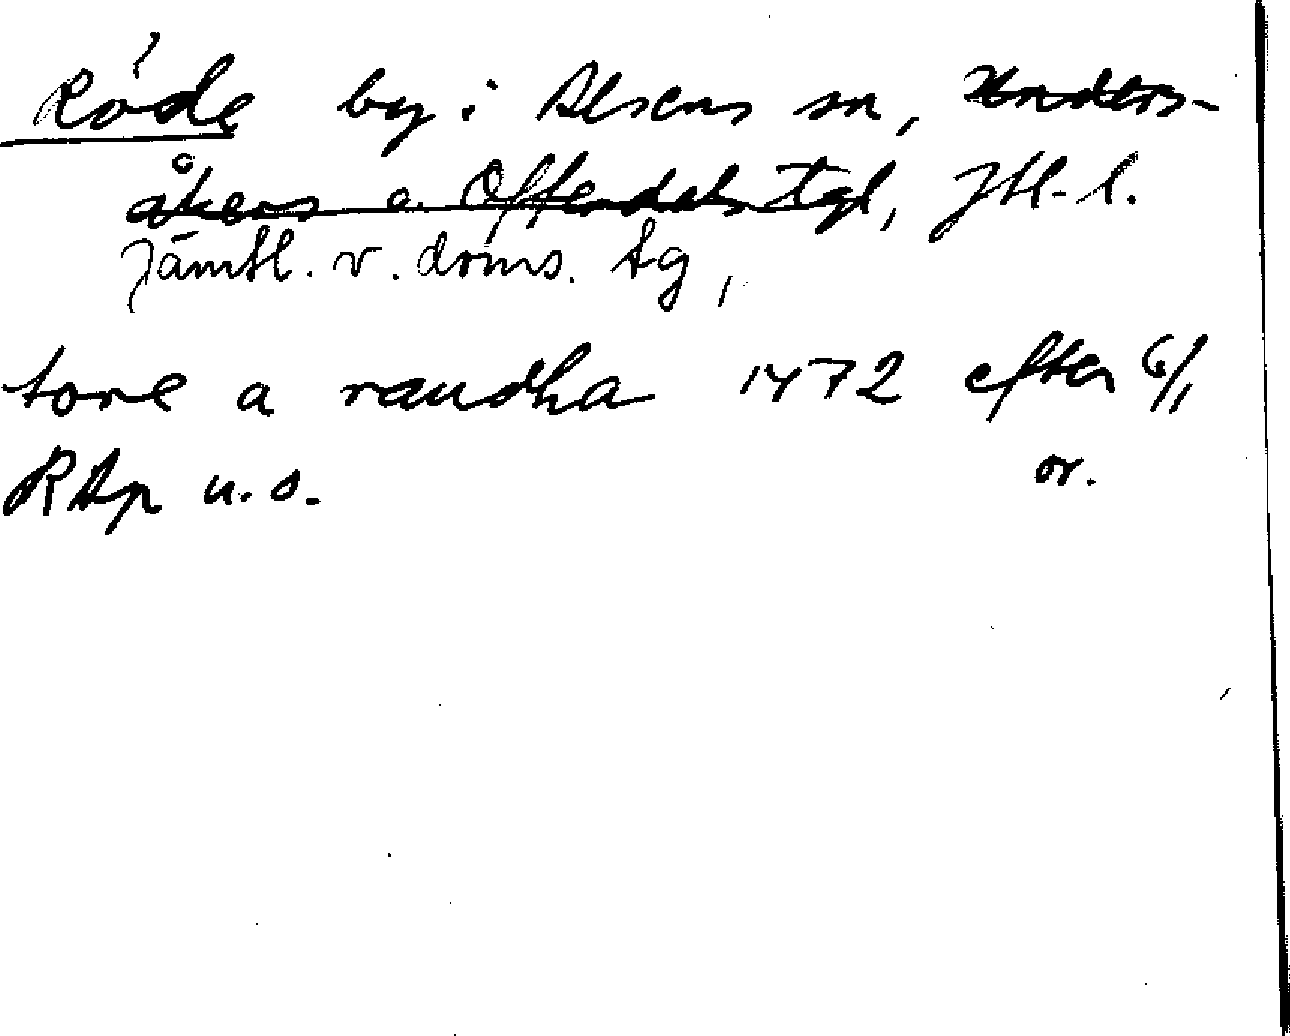 Röde by i Alsens sn, Unders-
åkers o. Offerdals tgl, Jtl-l.
Jämtl. v. doms. tg,
tore a raudha 1472 efter 6/1
RAp u.s. or.